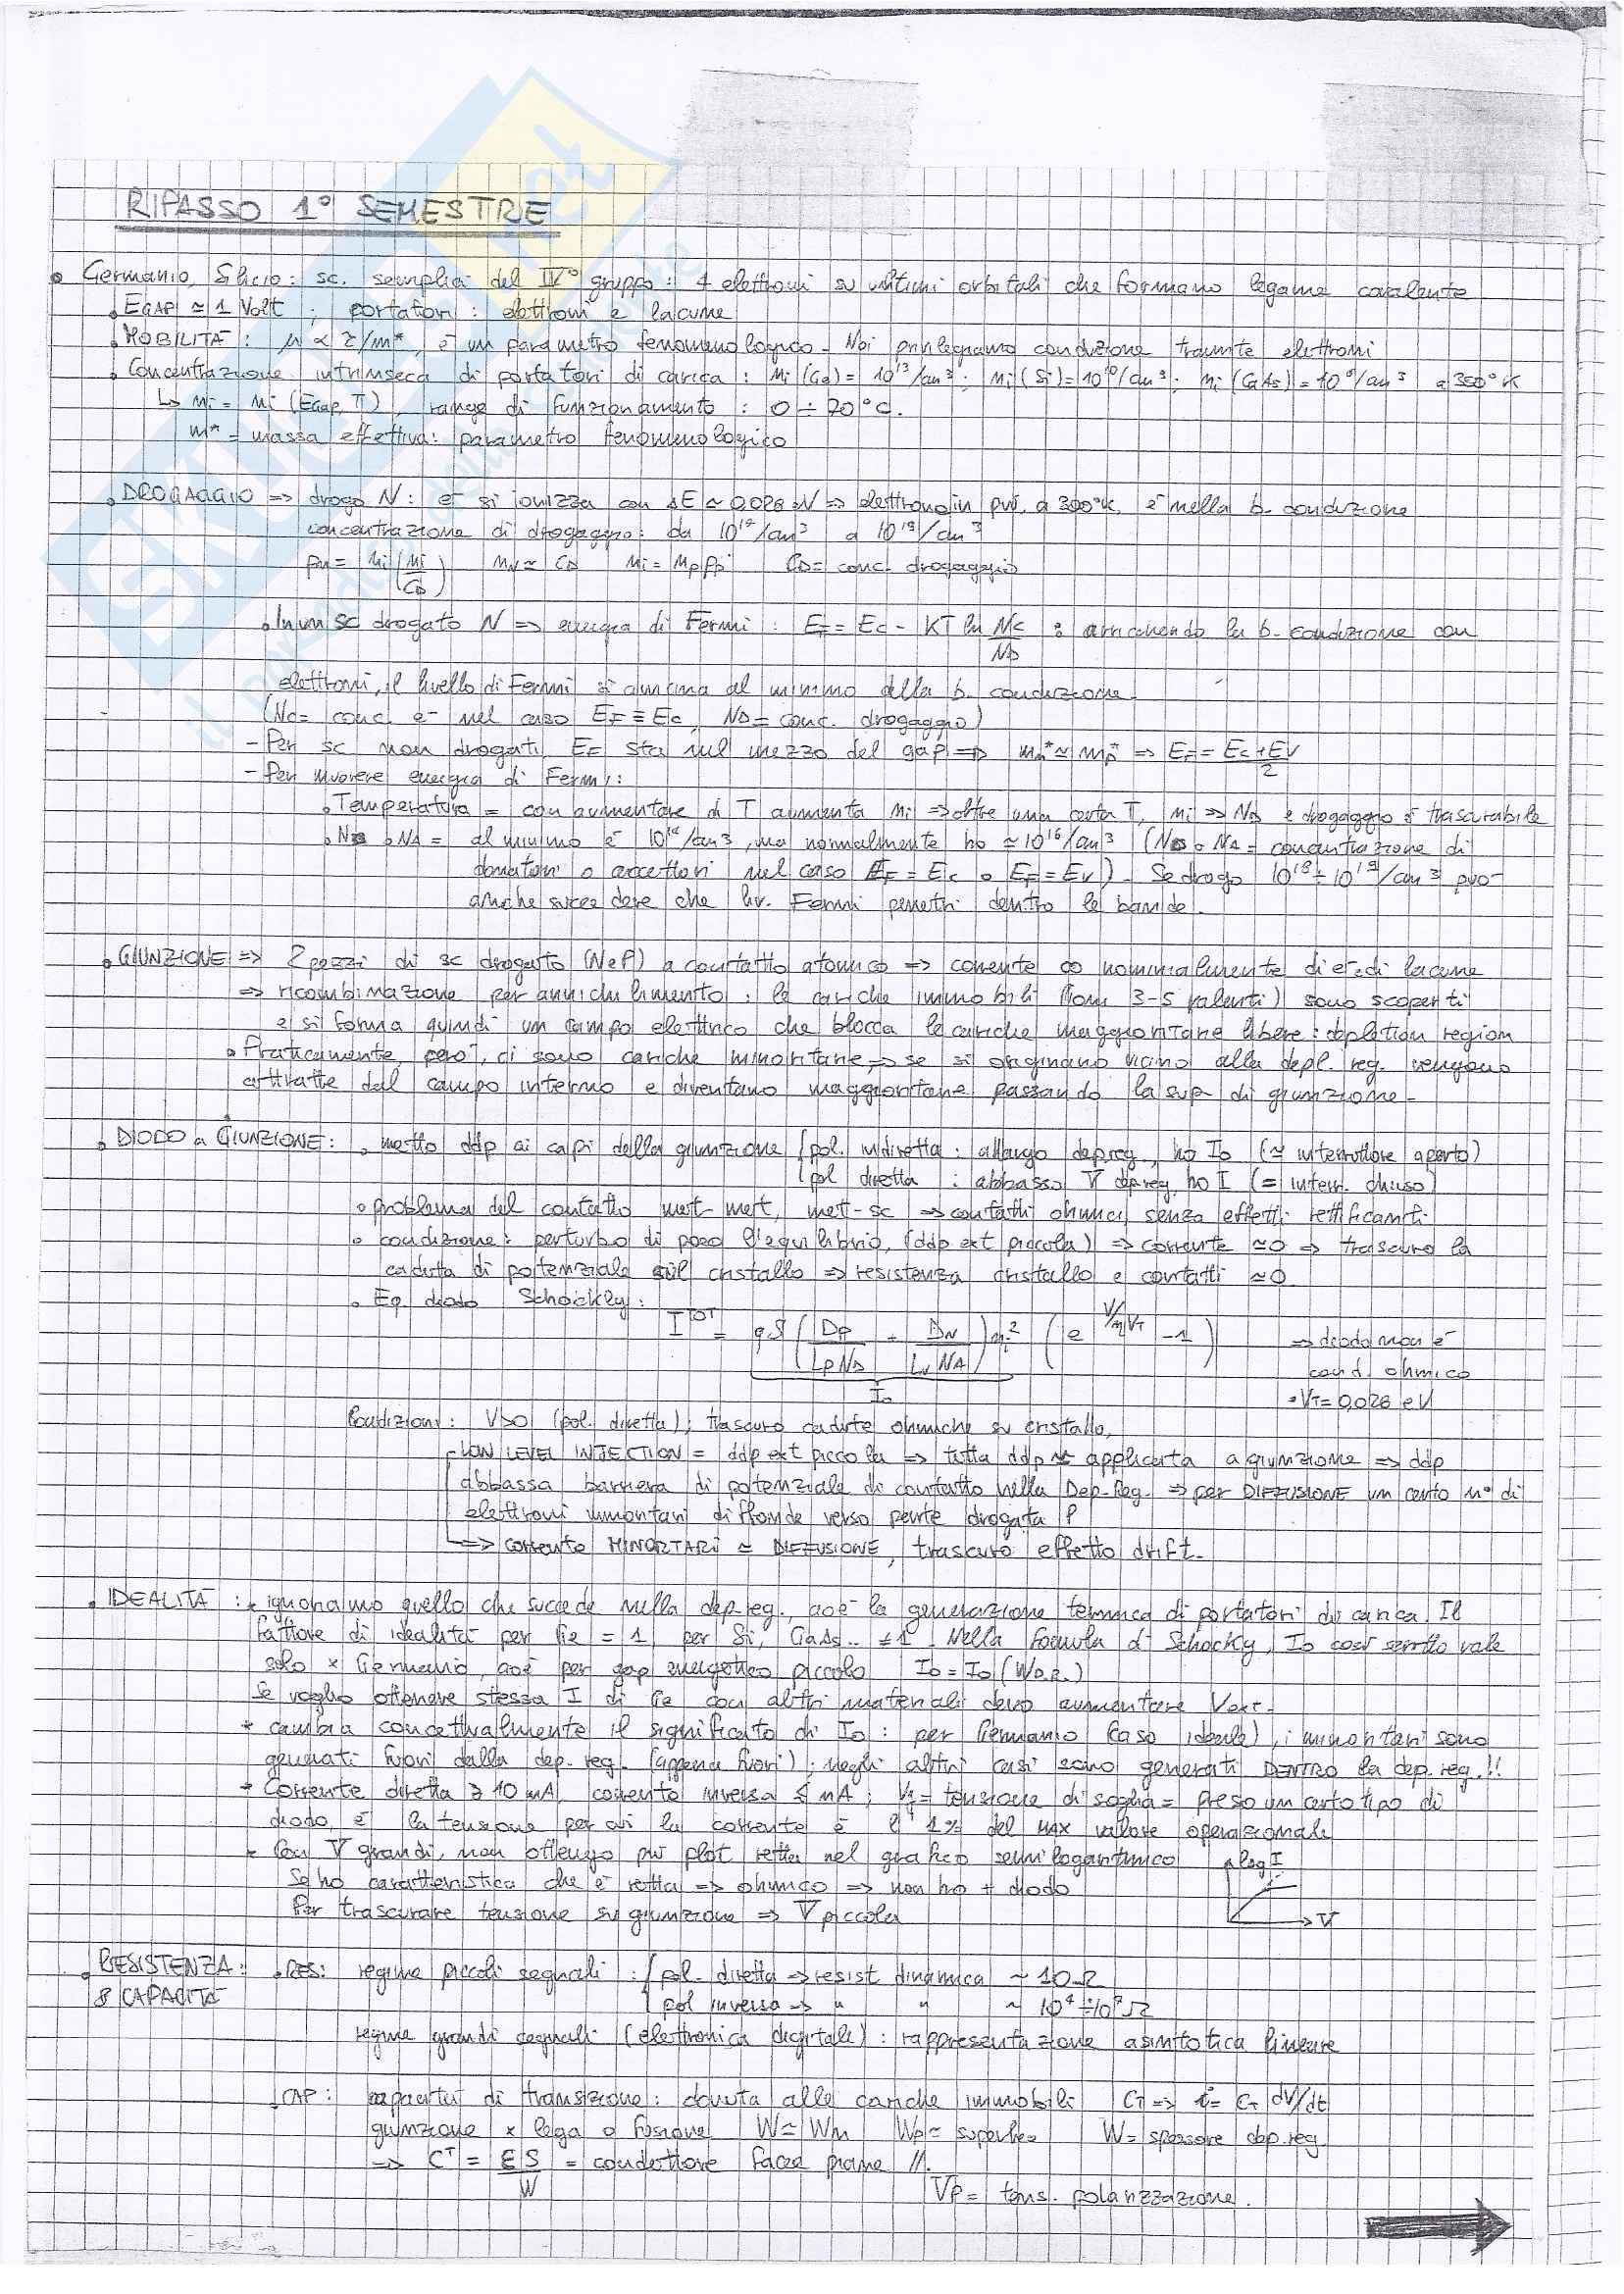 RIPASSO 1° SEMESTRE
• Germanio, Silicio: sc. semplici del IV° gruppo: 4 elettroni su ultimi orbitali che formano legame covalente
• EGAP ≃ 1 Volt ; portatori: elettroni e lacune
• MOBILITÀ: μ ∝ τ/m*, è un parametro fenomenologico - Noi privilegiamo conduzione tramite elettroni
• Concentrazione intrinseca di portatori di carica: ni(Ge) = 10¹³/cm³; ni(Si) = 10¹⁰/cm³; ni(GaAs) = 10⁶/cm³ a 350°K
↳ ni = ni (Egap, T), range di funzionamento: 0 ÷ 70°C.
m* = massa effettiva: parametro fenomenologico
• DROGAGGIO => drogo N: e⁻ si ionizza con ΔE ≃ 0,028 => elettrone in più, a 300°K, è nella b. conduzione
concentrazione di drogaggio: da /cm³ a 10¹⁹/cm³
pn = ni (ni/CD) nN ≃ CD ni = np pp CD = conc. drogaggio
• In un sc drogato N => energia di Fermi: EF = Ec - KT ln Nc/ND : arricchendo la b. conduzione con
elettroni, il livello di Fermi si avvicina al minimo della b. conduzione
(Nc = conc. e⁻ nel caso EF ≡ Ec, ND = conc. drogaggio)
- Per sc non drogati, EF sta nel mezzo del gap => mn* ≃ mp* => EF = Ec+EV/2
- Per muovere energia di Fermi:
• Temperatura = con aumentare di T aumenta ni => oltre una certa T, ni => ND e drogaggio è trascurabile
• ND o NA = al minimo è /cm³, ma normalmente ho ≃ 10¹⁶/cm³ (ND o NA = concentrazione di
donatori o accettori nel caso EF = Ec o EF = EV). Se drogo 10¹⁸ ÷ 10¹⁹/cm³ può
anche succedere che liv. Fermi penetri dentro le bande.
• GIUNZIONE => 2 pezzi di sc drogato (N e P) a contatto atomico => corrente ∞ nominalmente di e⁻ e di lacune
=> ricombinazione per annichilimento: le cariche immobili (ioni 3-5 valenti) sono scoperti
e si forma quindi un campo elettrico che blocca le cariche maggioritarie libere: depletion region
• Praticamente, però, ci sono cariche minoritarie => se si originano vicino alla depl. reg. vengono
attratte dal campo interno e diventano maggioritarie passando la sup. di giunzione-
• DIODO a GIUNZIONE: • metto ddp ai capi della giunzione { pol. indiretta: allargo dep.reg, ho I0 (≃ interruttore aperto)
pol diretta: abbasso V dep.reg, ho I (= interr. chiuso)
• problema del contatto met-met, met-sc => contatti ohmici, senza effetti rettificanti.
• condizione: perturbo di poco l'equilibrio, (ddp ext piccola) => corrente ≃0 => trascuro la
caduta di potenziale sul cristallo => resistenza cristallo e contatti ≃0
• Eq. diodo Schockley:
I^TOT = qS (Dp/LpND + DN/LNNA) ni² (e^V/ηVT -1) => diodo non è
I0 cond. ohmico
• VT = 0,026 eV
Condizioni: V>0 (pol. diretta); trascuro cadute ohmiche su cristallo,
LOW LEVEL INJECTION = ddp ext piccola => tutta ddp applicata a giunzione => ddp
abbassa barriera di potenziale di contatto nella Dep. Reg. => per DIFFUSIONE un certo n° di
elettroni minoritari diffonde verso parte drogata P
=> corrente MINORITARI ≃ DIFFUSIONE, trascuro effetto drift.
• IDEALITÀ: * ignoriamo quello che succede nella dep.reg., cioè la generazione termica di portatori di carica. Il
fattore di idealità per Ge = 1, per Si, GaAs.. ≠1. Nella formula di Schocky, I0 così scritto vale
solo x Germanio, cioè per gap energetico piccolo I0 = I0 (WD.R.)
Se voglio ottenere stessa I di Ge con altri materiali devo aumentare Vext.
* cambia concettualmente il significato di I0: per Germanio (caso ideale), i minoritari sono
generati fuori dalla dep. reg. (appena fuori); negli altri casi sono generati DENTRO la dep. reg.!!
* Corrente diretta ≥ 10 mA, corrente inversa ≤ nA; Vγ = tensione di soglia = preso un certo tipo di
diodo, è la tensione per cui la corrente è l'1% del MAX valore operazionale
* Con V grandi, non ottengo più plot retta nel grafico semilogaritmico log I
Se ho caratteristica che è retta => ohmico => non ho + diodo
Per trascurare tensione su giunzione => V piccola V
• RESISTENZA: • RES: regime piccoli segnali: { pol. diretta => resist dinamica ~ 10 Ω
& CAPACITÀ pol inversa => " " ~ Ω
regime grandi segnali (elettronica digitale): rappresentazione asintotica lineare
• CAP: capacità di transizione: dovuta alle cariche immobili CT => i = CT dV/dt
giunzione x lega o fusione W ≃ Wn Wp ≃ W = spessore dep.reg
=> CT = εS/W = condottore facce piane //.
VP = tens. polarizzazione.